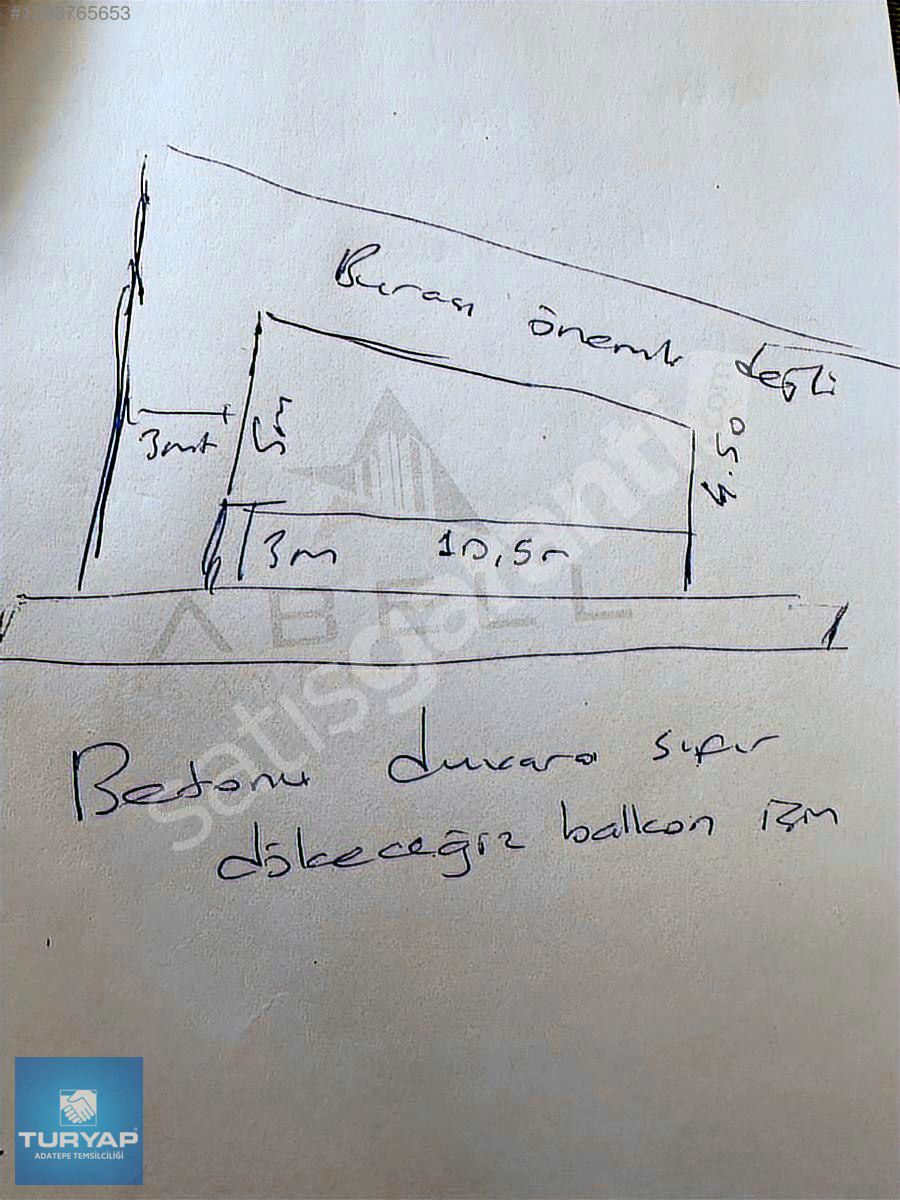 Burası önemli değli
3mt
5m
4.50
3m
10,5m
ABELL
satisgaranti.com
Betonu duvara sıfır
dökeceğiz balkon için
TURYAP
ADATEPE TEMSİLCİLİĞİ